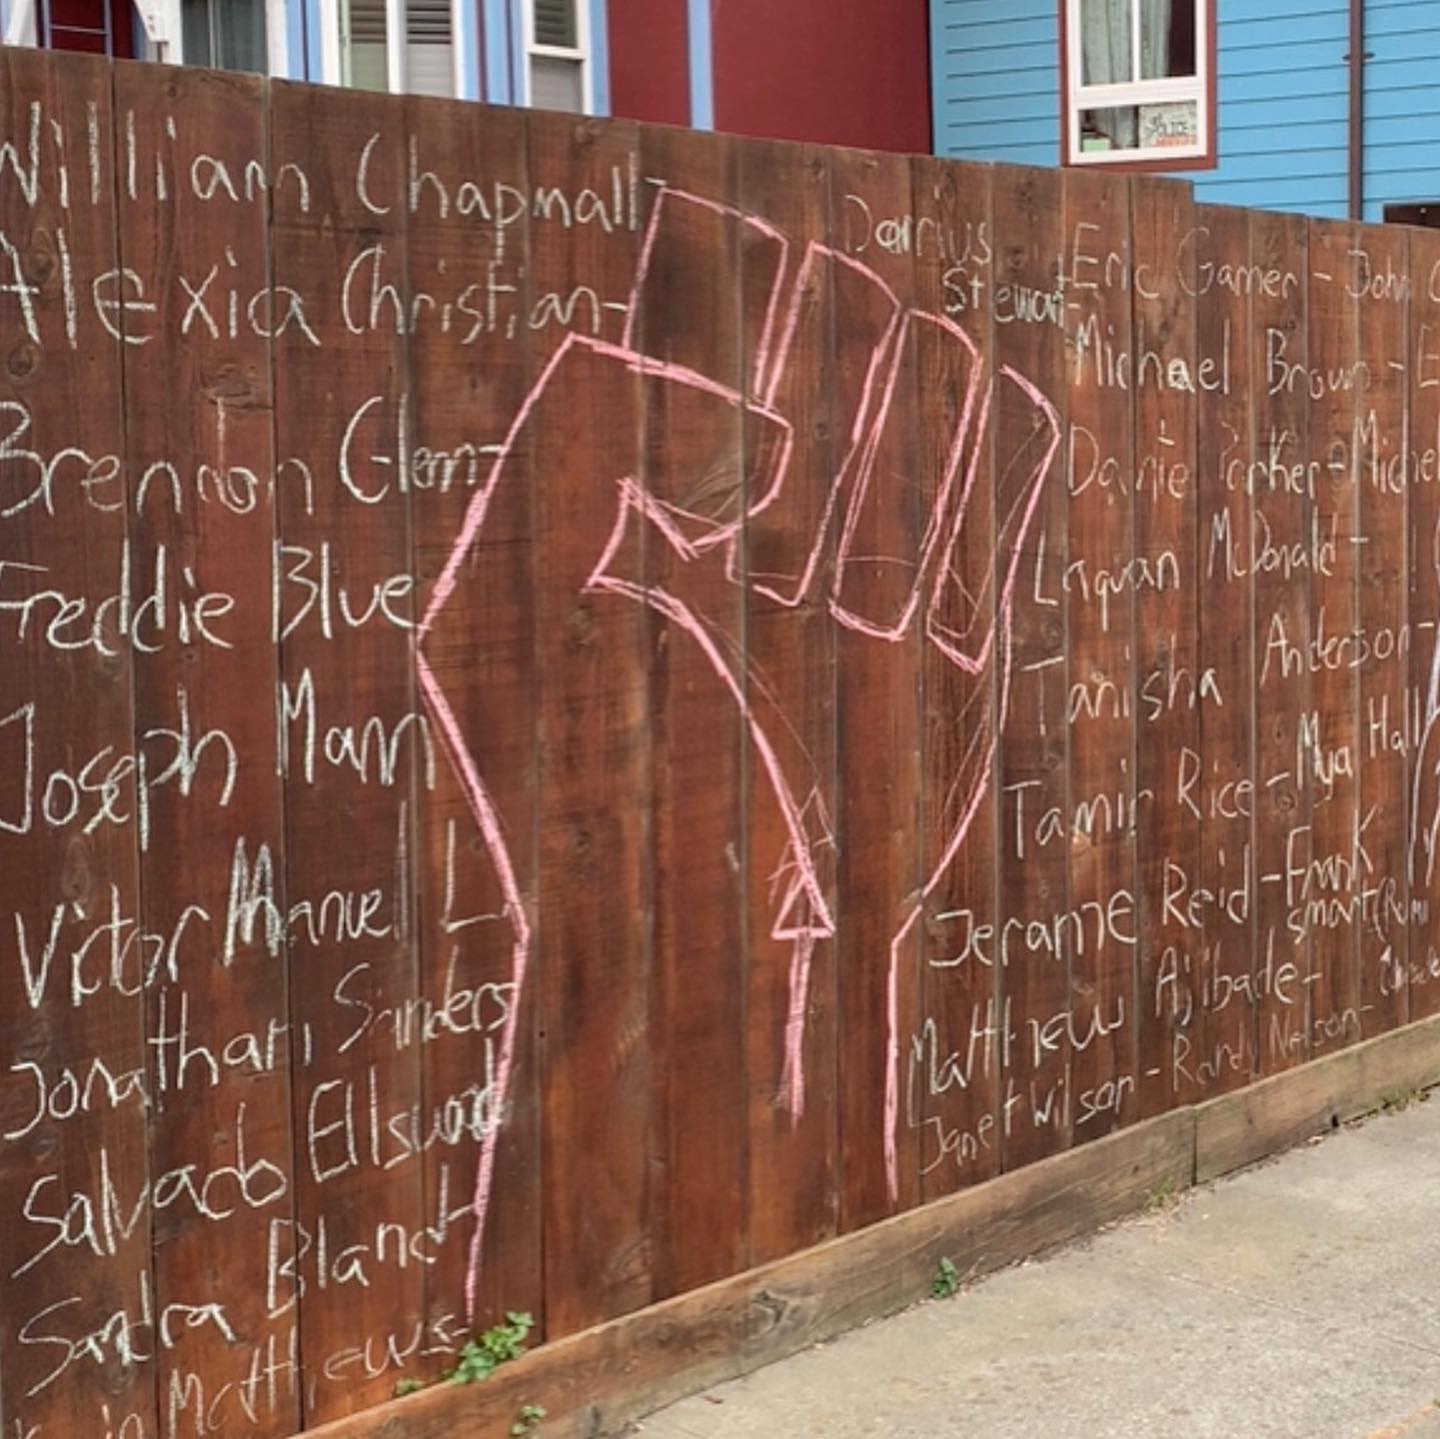 William Chapmall -
Alexia Christian -
Brendon Glenn -
Freddie Blue
Joseph Mann
Victor Manuel L
Jonathan Sanders
Salvado Ellswood
Sandra Bland -
Matthews -
Darius
Stewart -
Eric Garner - John
Michael Brown -
Dante Parker - Michel
Laquan McDonald -
Tanisha Anderson -
Tamir Rice - Mya Hall
Jerame Reid - Frank
Smart
Matthew Ajibade -
Janet Wilson - Randy Nelson -
POLICE